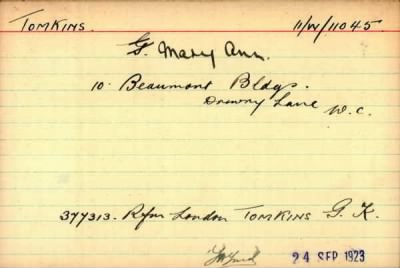 TOMKINS. 11/W/11045
G. Mary Ann.
10. Beaumont Bldgs.
Drewry Lane W.C.
377313. Rfm London TOMKINS G. K.
24 SEP 1923